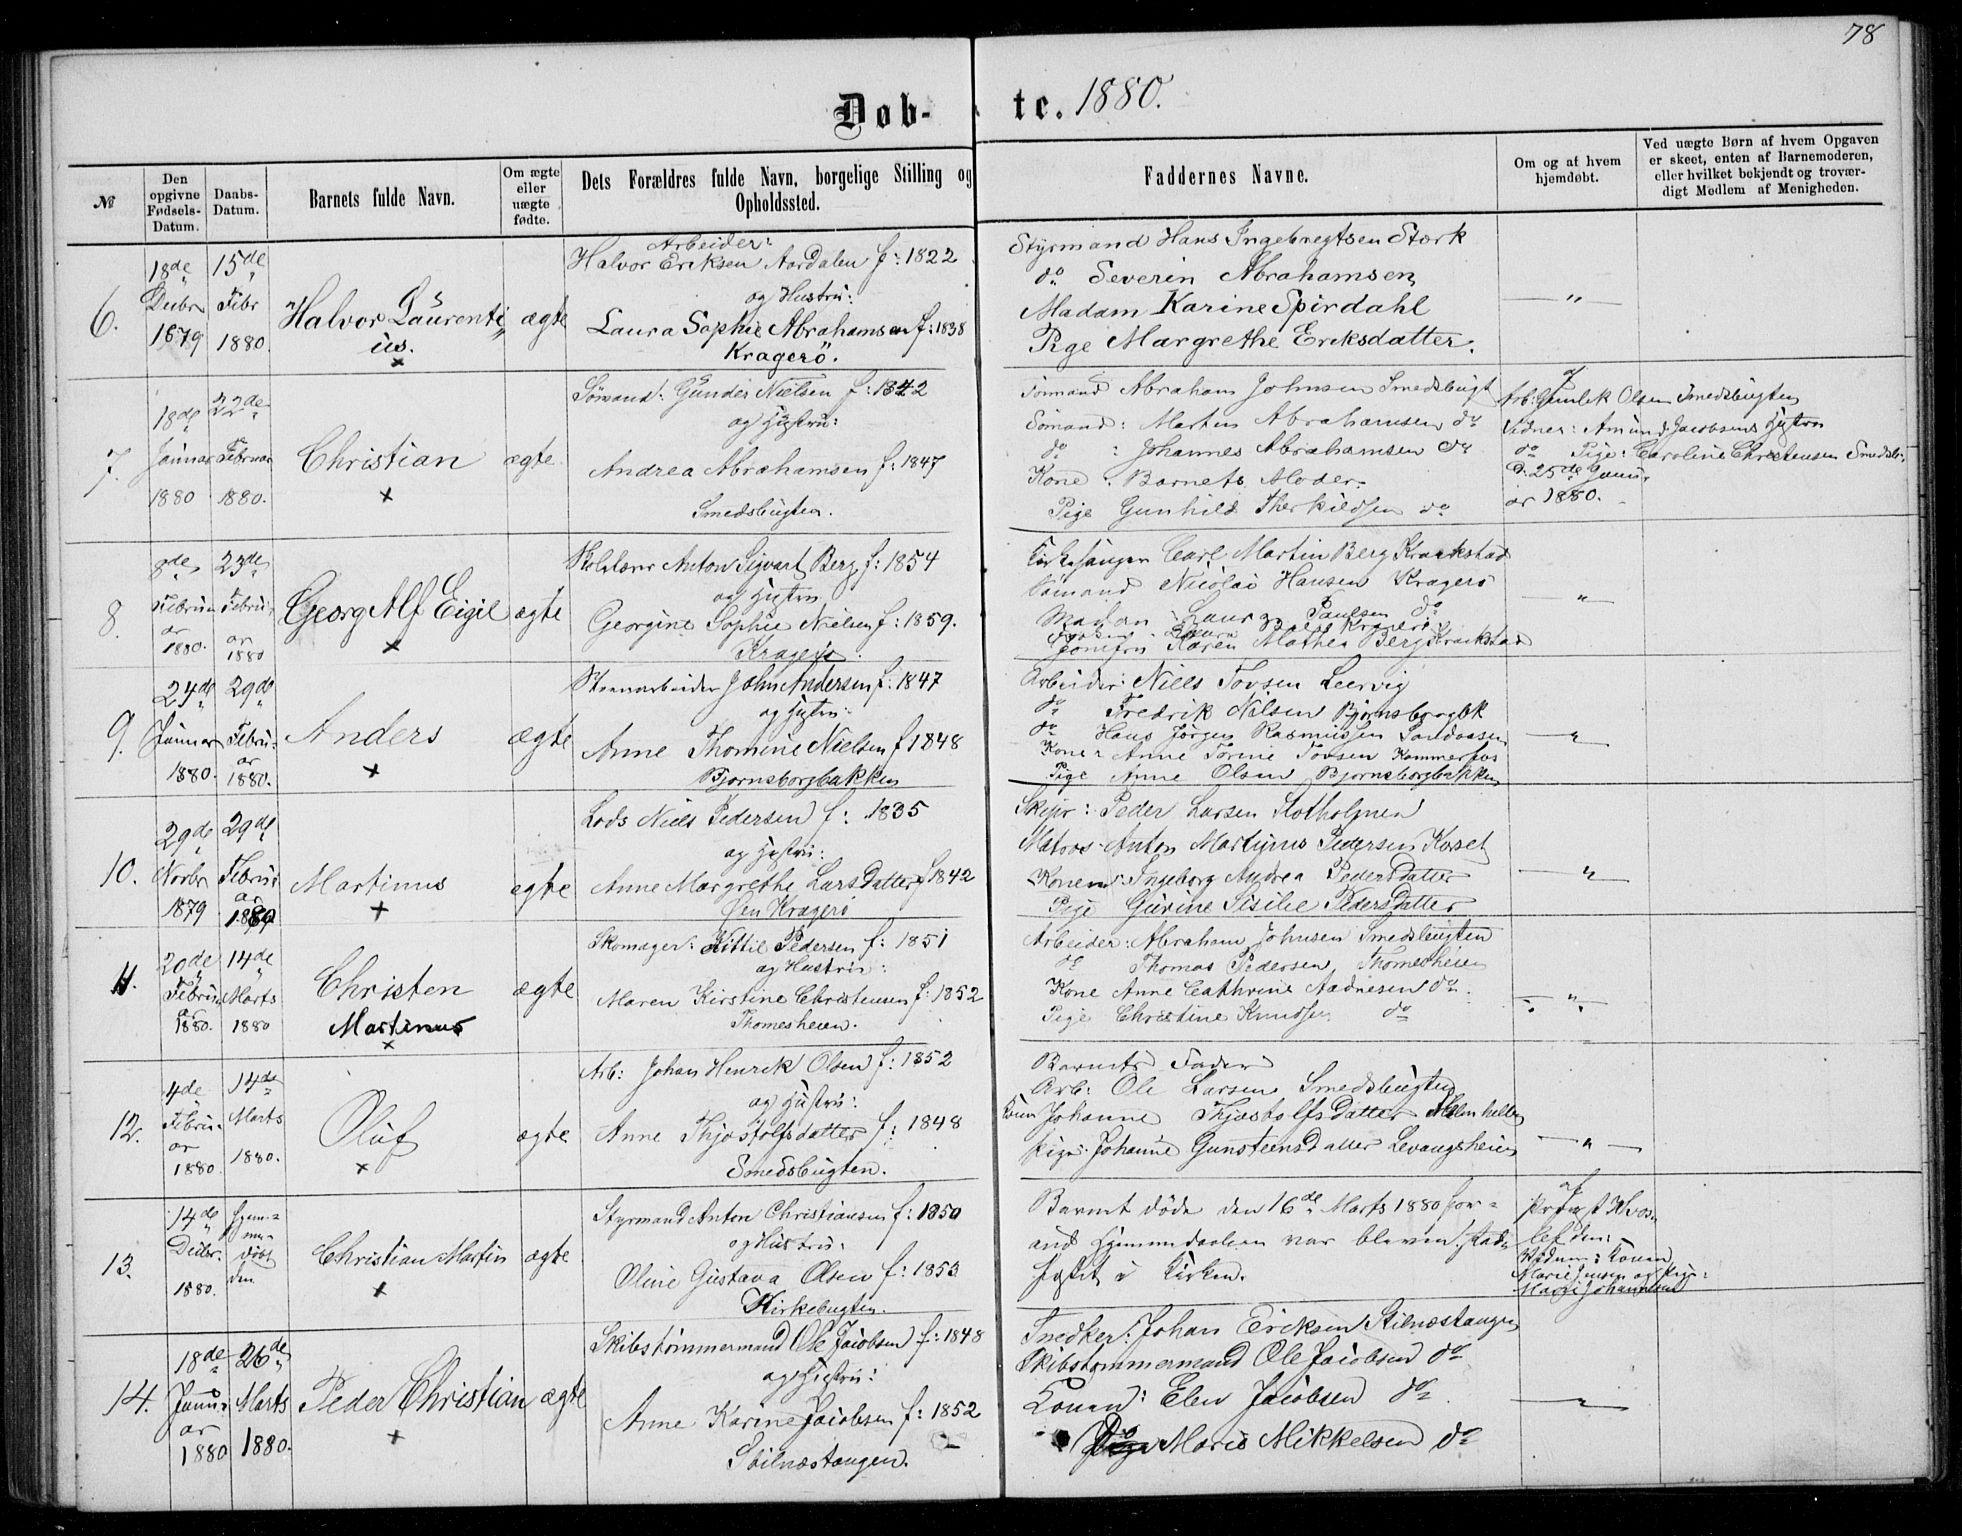 78
Døb- te. 1880.
№
Den opgivne Fødsels-Datum.
Daabs-Datum.
Barnets fulde Navn.
Om ægte eller uægte fødte.
Dets Forældres fulde Navn, borgelige Stilling og Opholdssted.
Faddernes Navne.
Om og af hvem hjemdøbt.
Ved uægte Børn af hvem Opgaven er skeet, enten af Barnemoderen, eller hvilket bekjendt og troværdigt Medlem af Menigheden.
6.
18de Decbr 1879
15de Febr 1880.
Halvor Laurentius.
ægte
Arbeider:
Halvor Eriksen Aardalen f: 1822
og Hustru:
Laura Sophie Abrahamsen f: 1838
Kragerö.
Styrmand Hans Ingebregtsen Stærk
do Severin Abrahamsen
Madam Karine Spirdahl
Pige Margrethe Eriksdatter.
— " —
7.
18de Januar 1880
22de Februar 1880.
Christian
ægte.
Sömand: Gunder Nielsen f: 1842
og Hustru:
Andrea Abrahamsen f: 1847
Smedsbugten.
Sömand Abraham Johnsen Smedsbugt
Sömand: Martin Abrahamsen do
do : Johannes Abrahamsen do
Kone: Barnets Moder.
Pige Gunhild Therkildsen do
Arb: Gunlek Olsen Smedsbugten
Vidner: Amund Jacobsens Hustru
do Pige: Caroline Christensen Smedsb:
D. 25de Januar 1880.
8.
8de Februar 1880.
23de Februar 1880
Georg Alf Eigil
ægte
Skolelærer Anton Sigvart Berg f: 1854
og Hustru
Georgine Sophie Nielsen f: 1859.
Kragerö.
Kirkesanger Carl Martin Berg Kraakstad
Sömand Nicolai Hansen Kragerö
Madam Laura Paulsen do
Jomfru Karen Mathea Berg Kraakstad
— " —
9.
24de Januar 1880.
29de Februar 1880.
Anders
ægte
Steenarbeider John Andersen f: 1847
og Hustru:
Anne Thomine Nielsen f 1848
Bjornsborgbakken
Arbeider: Niels Tovsen Leervig
do Fredrik Nilsen Bjørnsborgbk
do Hans Jørgen Rasmusen Sandaasen
Kone: Anne Torine Tovsen Kammerfos
Pige Anne Olsen Bjornsborgbakken
— " —
10.
29de Novbr 1879
29de Februar 1880
Martinus
ægte
Lods Niels Pedersen f: 1835
og Hustru:
Anne Margrethe Larsdatter f 1842
Øen Kragerö
Skipr: Peder Larsen Slotholmen
Matros Anton Martinius Pedersen Korset
Konen: Ingeborg Andrea Pedersdatter
Pige Gurine Sisilie Pedersdatter
— " —
11.
20de Februar 1880.
14de Marts 1880
Christen Martinus
ægte
Skomager: Kittil Pedersen f: 1851
og Hustru:
Maren Kirstine Christensen f: 1852
Thomesheien.
Arbeider: Abraham Johnsen Smedsbugten
do Thomas Pedersen Thomesheien
Kone Anne Cathrine Aadnesen do.
Pige Christine Knudsen do
— " —
12.
4de Februar 1880.
14de Marts 1880.
Oluf
ægte
Arb: Johan Henrik Olsen f: 1852
og Hustru:
Anne Thjostolfsdatter f: 1848
Smedsbugten.
Barnets Fader
Arb: Ole Larsen Smedsbugten
Konen Johanne Thjostolfsdatter
Pige: Johanne Gunsteensdatter Levangsheien
— " —
13.
14de Decbr. 1880.
Hjemmedöbt den
Christian Martin
ægte
Styrmand Anton Christiansen f: 1850
og Hustru:
Oline Gustava Olsen f: 1853
Kirkebugten.
Barnet döde den 16de Marts 1880 forand Hjemmedaaben var bleven stadfestet i Kirken.
af Provst
Vidner: Konen Marie Jensen og Pige: Marie Johannesen
14.
18de Januar 1880
26de Marts 1880.
Peder Christian
ægte
Skibstömmermand Ole Jacobsen f: 1848
og Hustru:
Anne Karine Jacobsen f: 1852
Stilnæstangen.
Snedker: Johan Eriksen Stilnæstangen
Skibstommermand Ole Jacobsen do
Konen: Elen Jacobsen do.
Pige Marie Mikkelsen do
— " —